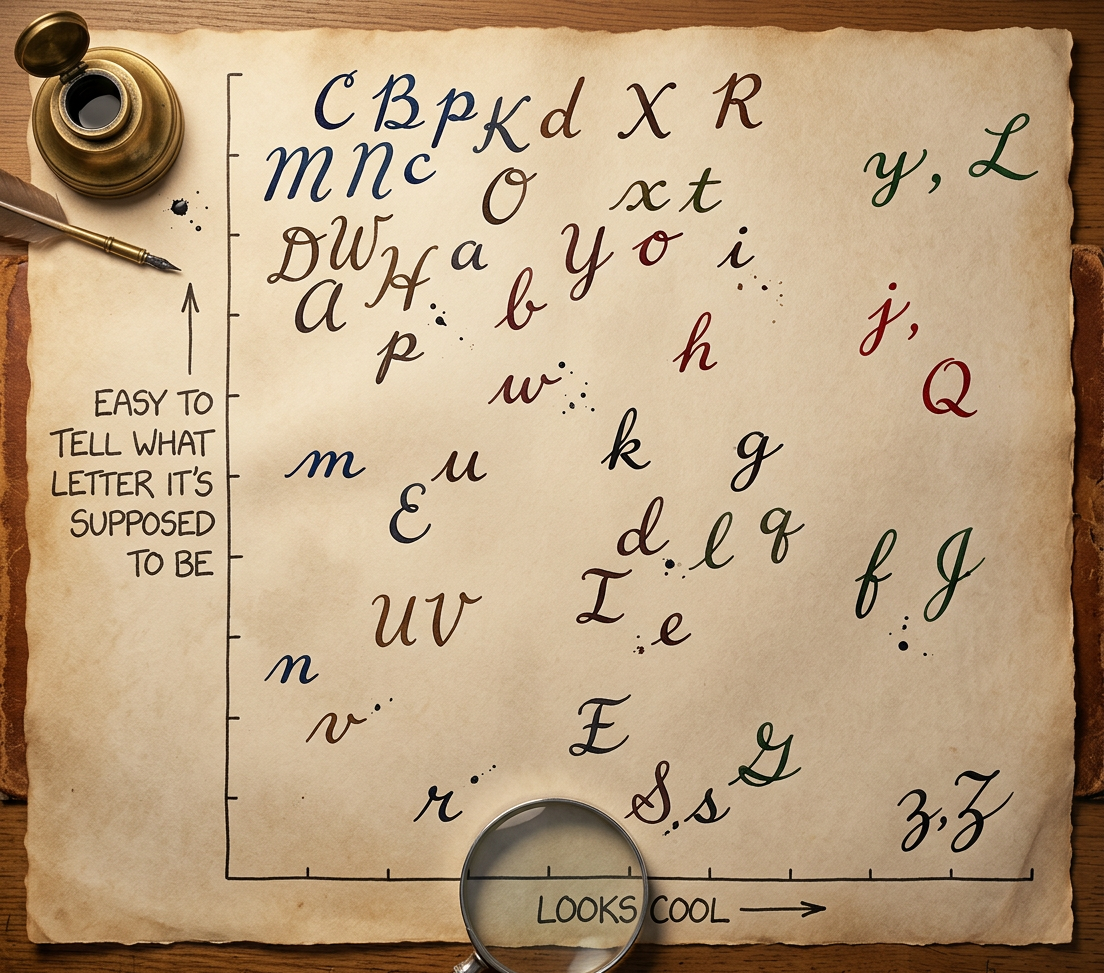 C B p K d X R
M N c O x t y, L
D W H a Y o i
A b j,
p h Q
w
m u k g
E d l q f J
I e
U V
n
v E G
r S, s z, Z
EASY TO
TELL WHAT
LETTER IT'S
SUPPOSED
TO BE
LOOKS COOL